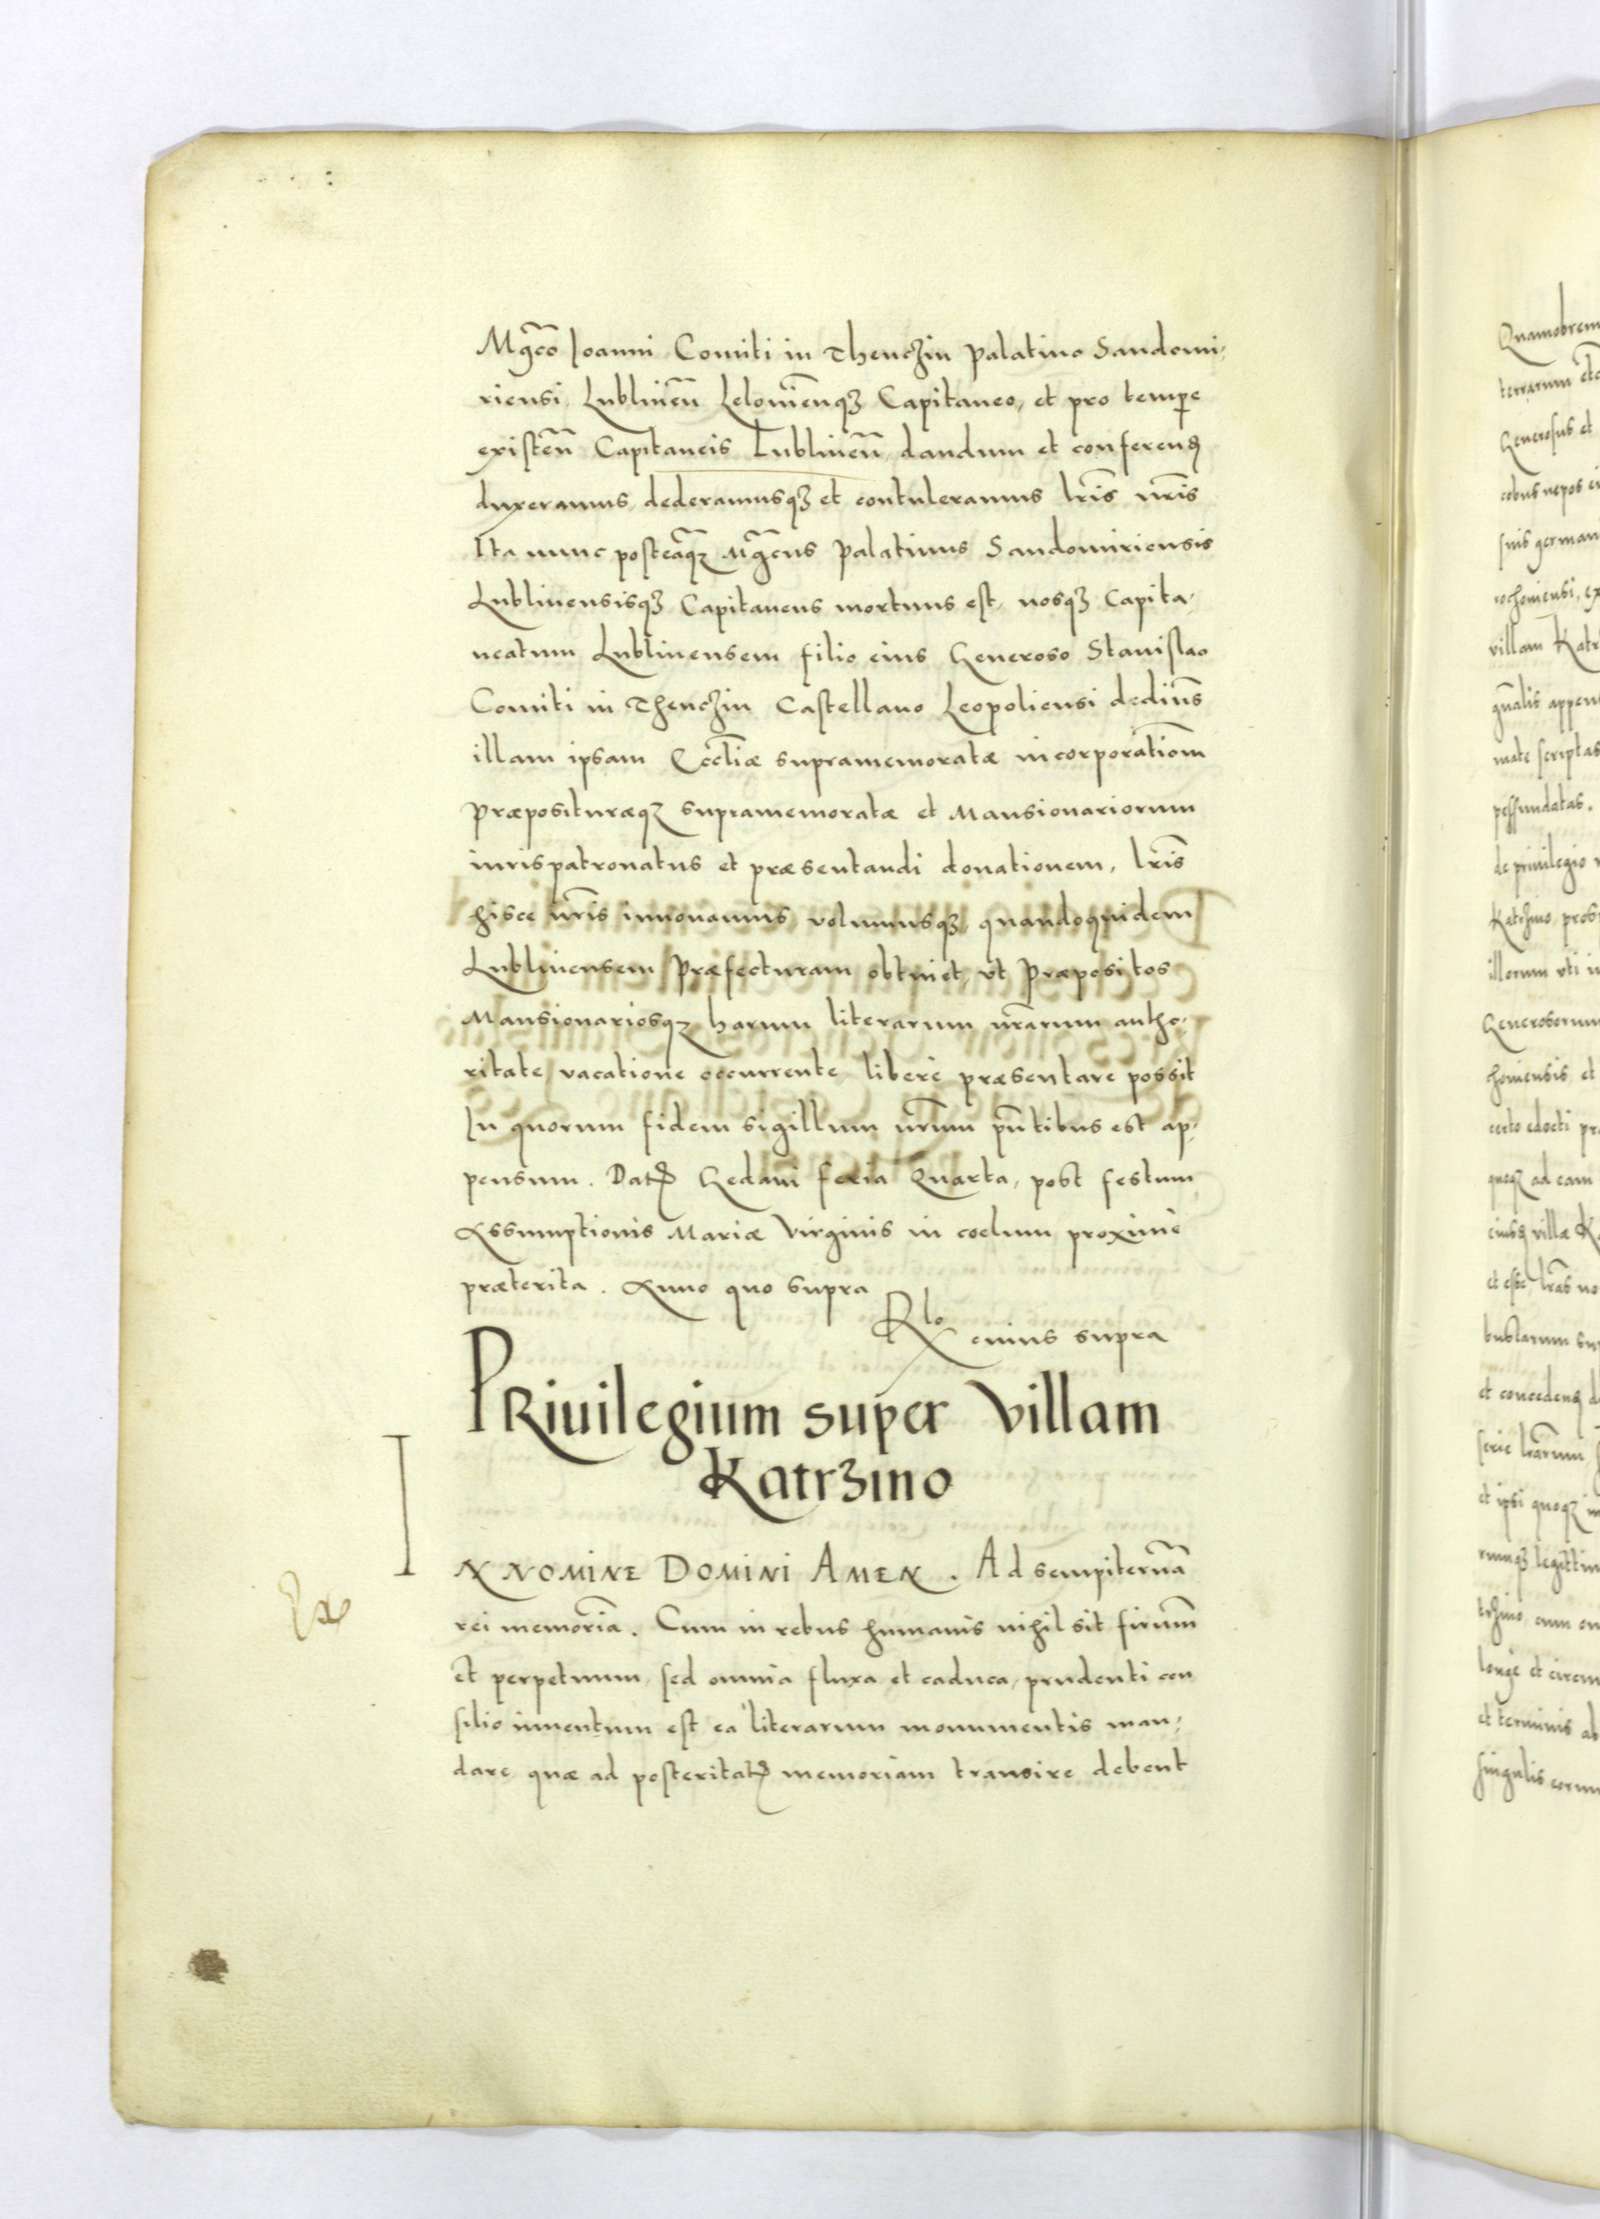 Mgc̃o Ioanni Comiti in Thenczin Palatino Sandomi-
riensi, Lublineñ Leloujenq3 Capitaneo, et pro tempe
existeñ Capitaneis Lublineñ dandum et conferend
duxeramus, dederamusq3 et contuleramus lris nris
Ita nunc posteaq3 Mgcus Palatinus Sandomiriensis
Lublinensisq3 Capitaneus mortuus est, nosq3 Capita-
neatum Lublinensem filio eius Generoso Stanislao
Comiti in Thenczin Castellano Leopoliensi dedim̃s
illam ipsam Eccl̃iæ supramemoratæ incorporatiom̃
Præposituræq3 supramemoratæ et Mansionariorum
iurispatronatus et præsentandi donationem, lris
hisce nris innouamus, volumusq3, quandoquidem
Lublinensem Præfecturam obtinet, vt Præpositos
Mansionariosq3 harum literarum nrarum autho-
ritate, vacatione occurrente libere præsentare possit
In quorum fidem sigillum nrum pñtibus est ap-
pensum. Dat Gedani feria Quarta, post festum
Assumptionis Mariæ Virginis in coelum proxime
præterita. Anno quo supra
Rlo cuius supra
PRiuilegium super Villam
Katrzino
IN NOMINE DOMINI AMEN. Ad sempiternã
rei memoriã. Cum in rebus humanis nihil sit firmum̃
et perpetuum, sed omnia fluxa et caduca, prudenti con
silio inuentum est ea literarum monumentis man-
dare, quæ ad posteritat memoriam transire debent
Quamobrem
terrarum etc
Generosus et
cobus nepos
suis german
villam Katr
gnalis appen
mate scriptas
pessundatas.
de priuilegio
Katrzino, prob
illorum vti
Generosorum
choniensis, et
certo edocti
quoq3 ad eam
villæ K
et esse lras no
bustarum su
et conceden
serie lrarum
et ipsi quoq3 in
rumq3 legittim
trzino, cum
longe et circum
et terminis ab
singulis eorum